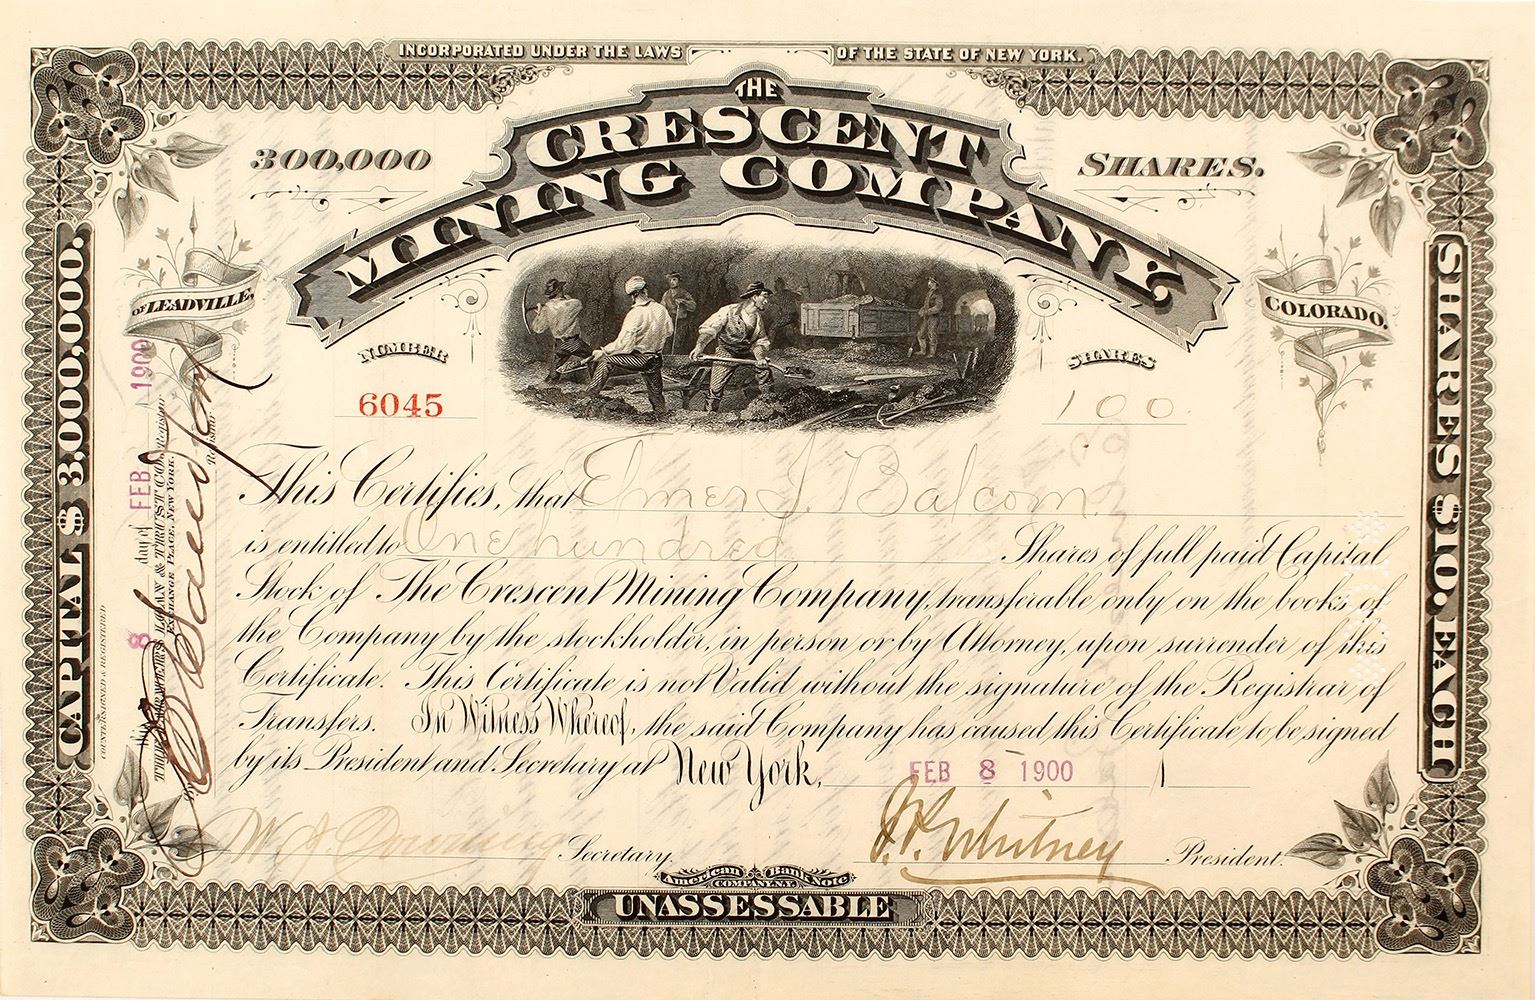 INCORPORATED UNDER THE LAWS OF THE STATE OF NEW YORK.
THE
CRESCENT
MINING COMPANY
300,000 SHARES.
OF LEADVILLE,
COLORADO.
NUMBER
6045
SHARES
100
This Certifies, that Elmer S. Balcom
is entitled to One hundred Shares of full paid Capital
Stock of The Crescent Mining Company, transferable only on the books of
the Company by the stockholder, in person or by Attorney, upon surrender of this
Certificate. This Certificate is not Valid without the signature of the Registrar of
Transfers. In Witness Whereof, the said Company has caused this Certificate to be signed
by its President and Secretary at New York, FEB 8 1900 1
W. J. Downing Secretary.
J. P. Whitney President.
American Bank Note
COMPANY, N.Y.
UNASSESSABLE
CAPITAL $3.000,000.
SHARES $10. EACH
COUNTERSIGNED & REGISTERED
8 day of FEB 1900
LOAN & TRUST CO. Registrar
EXCHANGE PLACE, NEW YORK.
Registrar